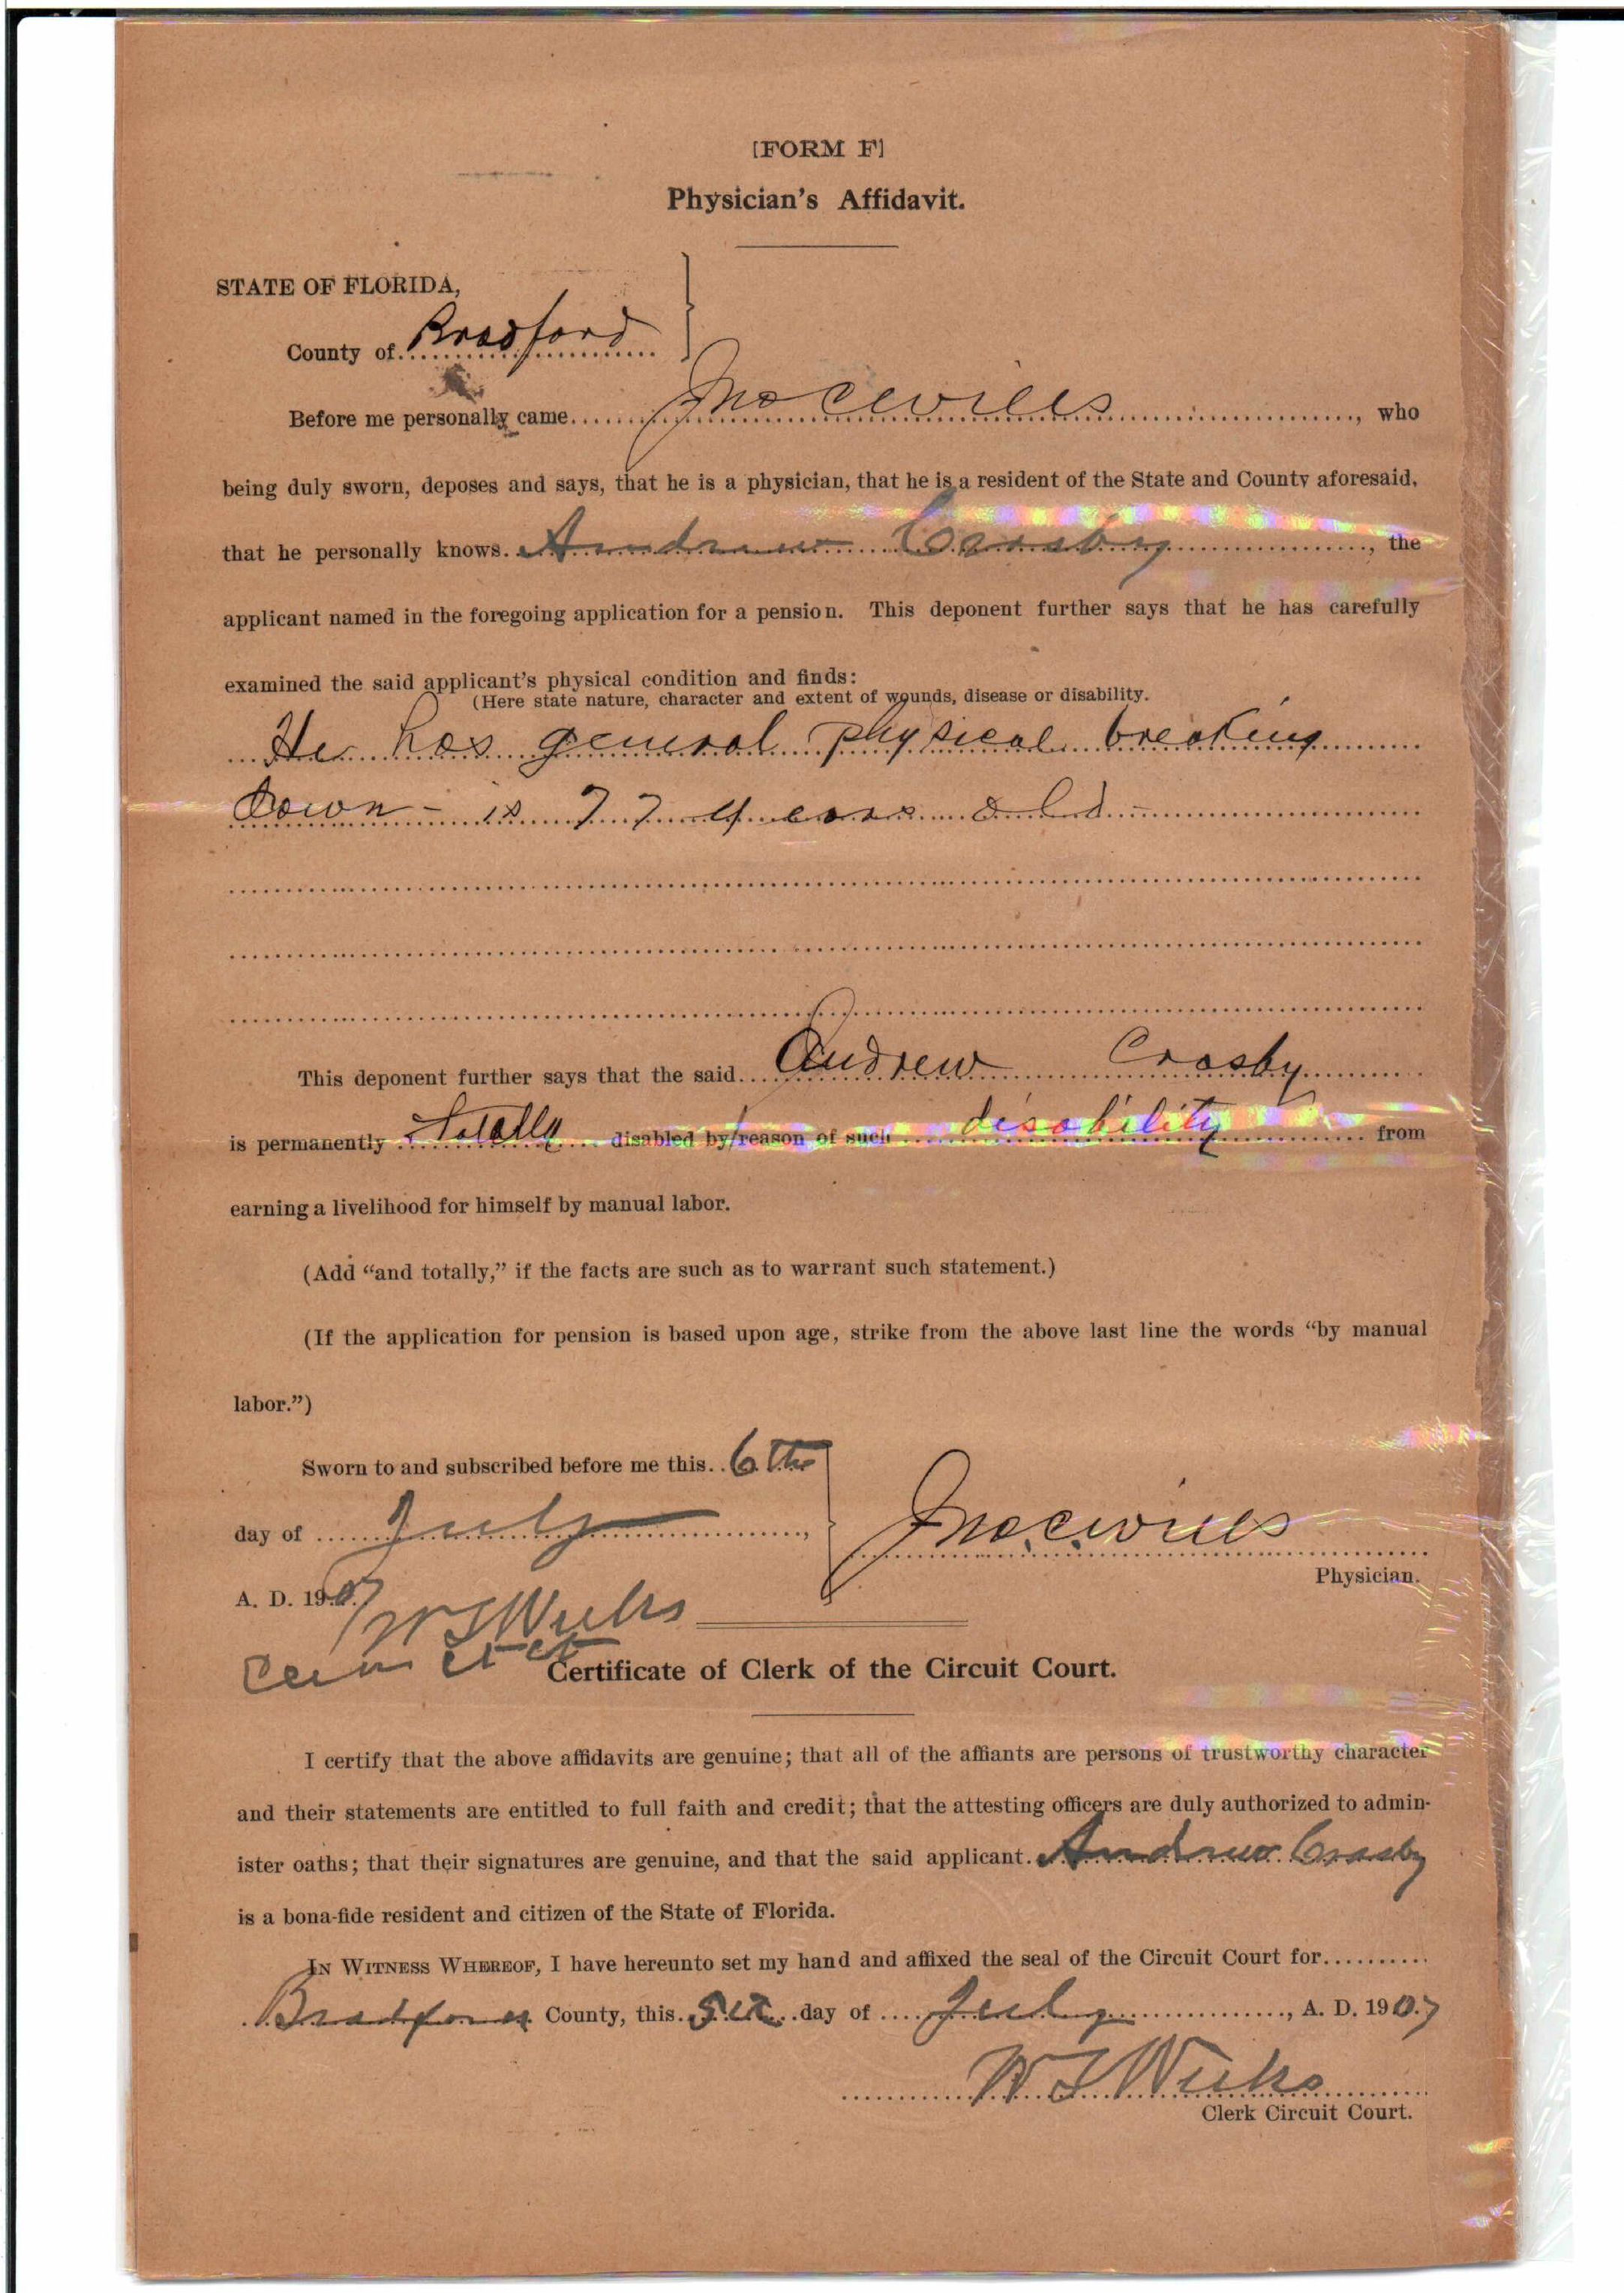 [FORM F]
Physician's Affidavit.
STATE OF FLORIDA,
County of Bradford
Before me personally came Jno C Wills, who
being duly sworn, deposes and says, that he is a physician, that he is a resident of the State and County aforesaid,
that he personally knows Andrew Crosby, the
applicant named in the foregoing application for a pension. This deponent further says that he has carefully
examined the said applicant's physical condition and finds:
(Here state nature, character and extent of wounds, disease or disability.
He has general physical breaking
down - is 77 years old -
This deponent further says that the said Andrew Crosby
is permanently totally disabled by reason of such disability from
earning a livelihood for himself by manual labor.
(Add "and totally," if the facts are such as to warrant such statement.)
(If the application for pension is based upon age, strike from the above last line the words "by manual
labor.")
Sworn to and subscribed before me this 6th
day of July,
Jno. C. Wills
Physician.
A. D. 1907
W T Weeks
Certificate of Clerk of the Circuit Court.
I certify that the above affidavits are genuine; that all of the affiants are persons of trustworthy character
and their statements are entitled to full faith and credit; that the attesting officers are duly authorized to admin-
ister oaths; that their signatures are genuine, and that the said applicant Andrew Crosby
is a bona-fide resident and citizen of the State of Florida.
IN WITNESS WHEREOF, I have hereunto set my hand and affixed the seal of the Circuit Court for
Bradford County, this day of July, A. D. 1907
W T Weeks
Clerk Circuit Court.